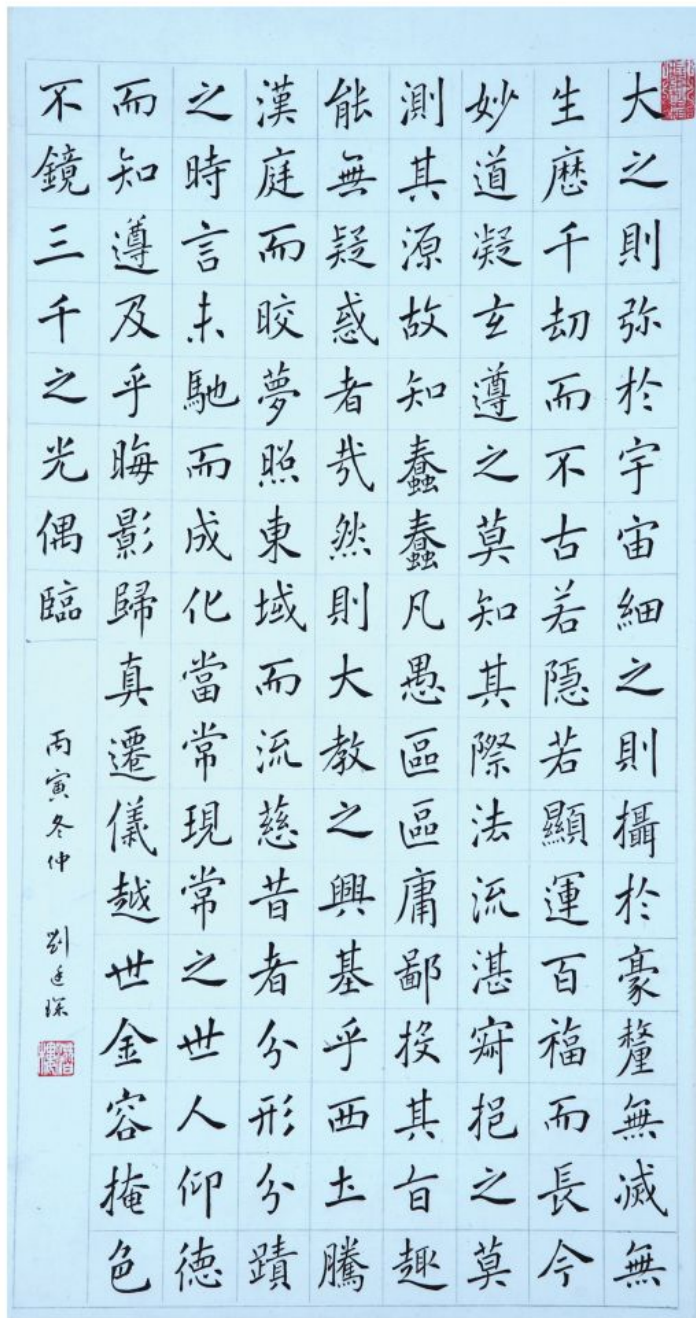 大之則弥於宇宙細之則攝於豪釐無滅無
生歷千劫而不古若隱若顯運百福而長今
妙道凝玄遵之莫知其際法流湛寂挹之莫
測其源故知蠢蠢凡愚區區庸鄙投其旨趣
能無疑惑者哉然則大教之興基乎西土騰
漢庭而皎夢照東域而流慈昔者分形分蹟
之時言未馳而成化當常現常之世人仰德
而知遵及乎晦影歸真遷儀越世金容掩色
不鏡三千之光偶臨
丙寅冬仲 劉廷琛